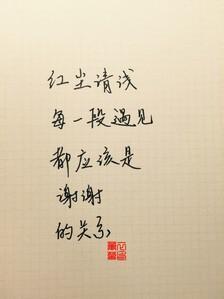 红尘请浅
每一段遇见
都应该是
谢谢
的关系